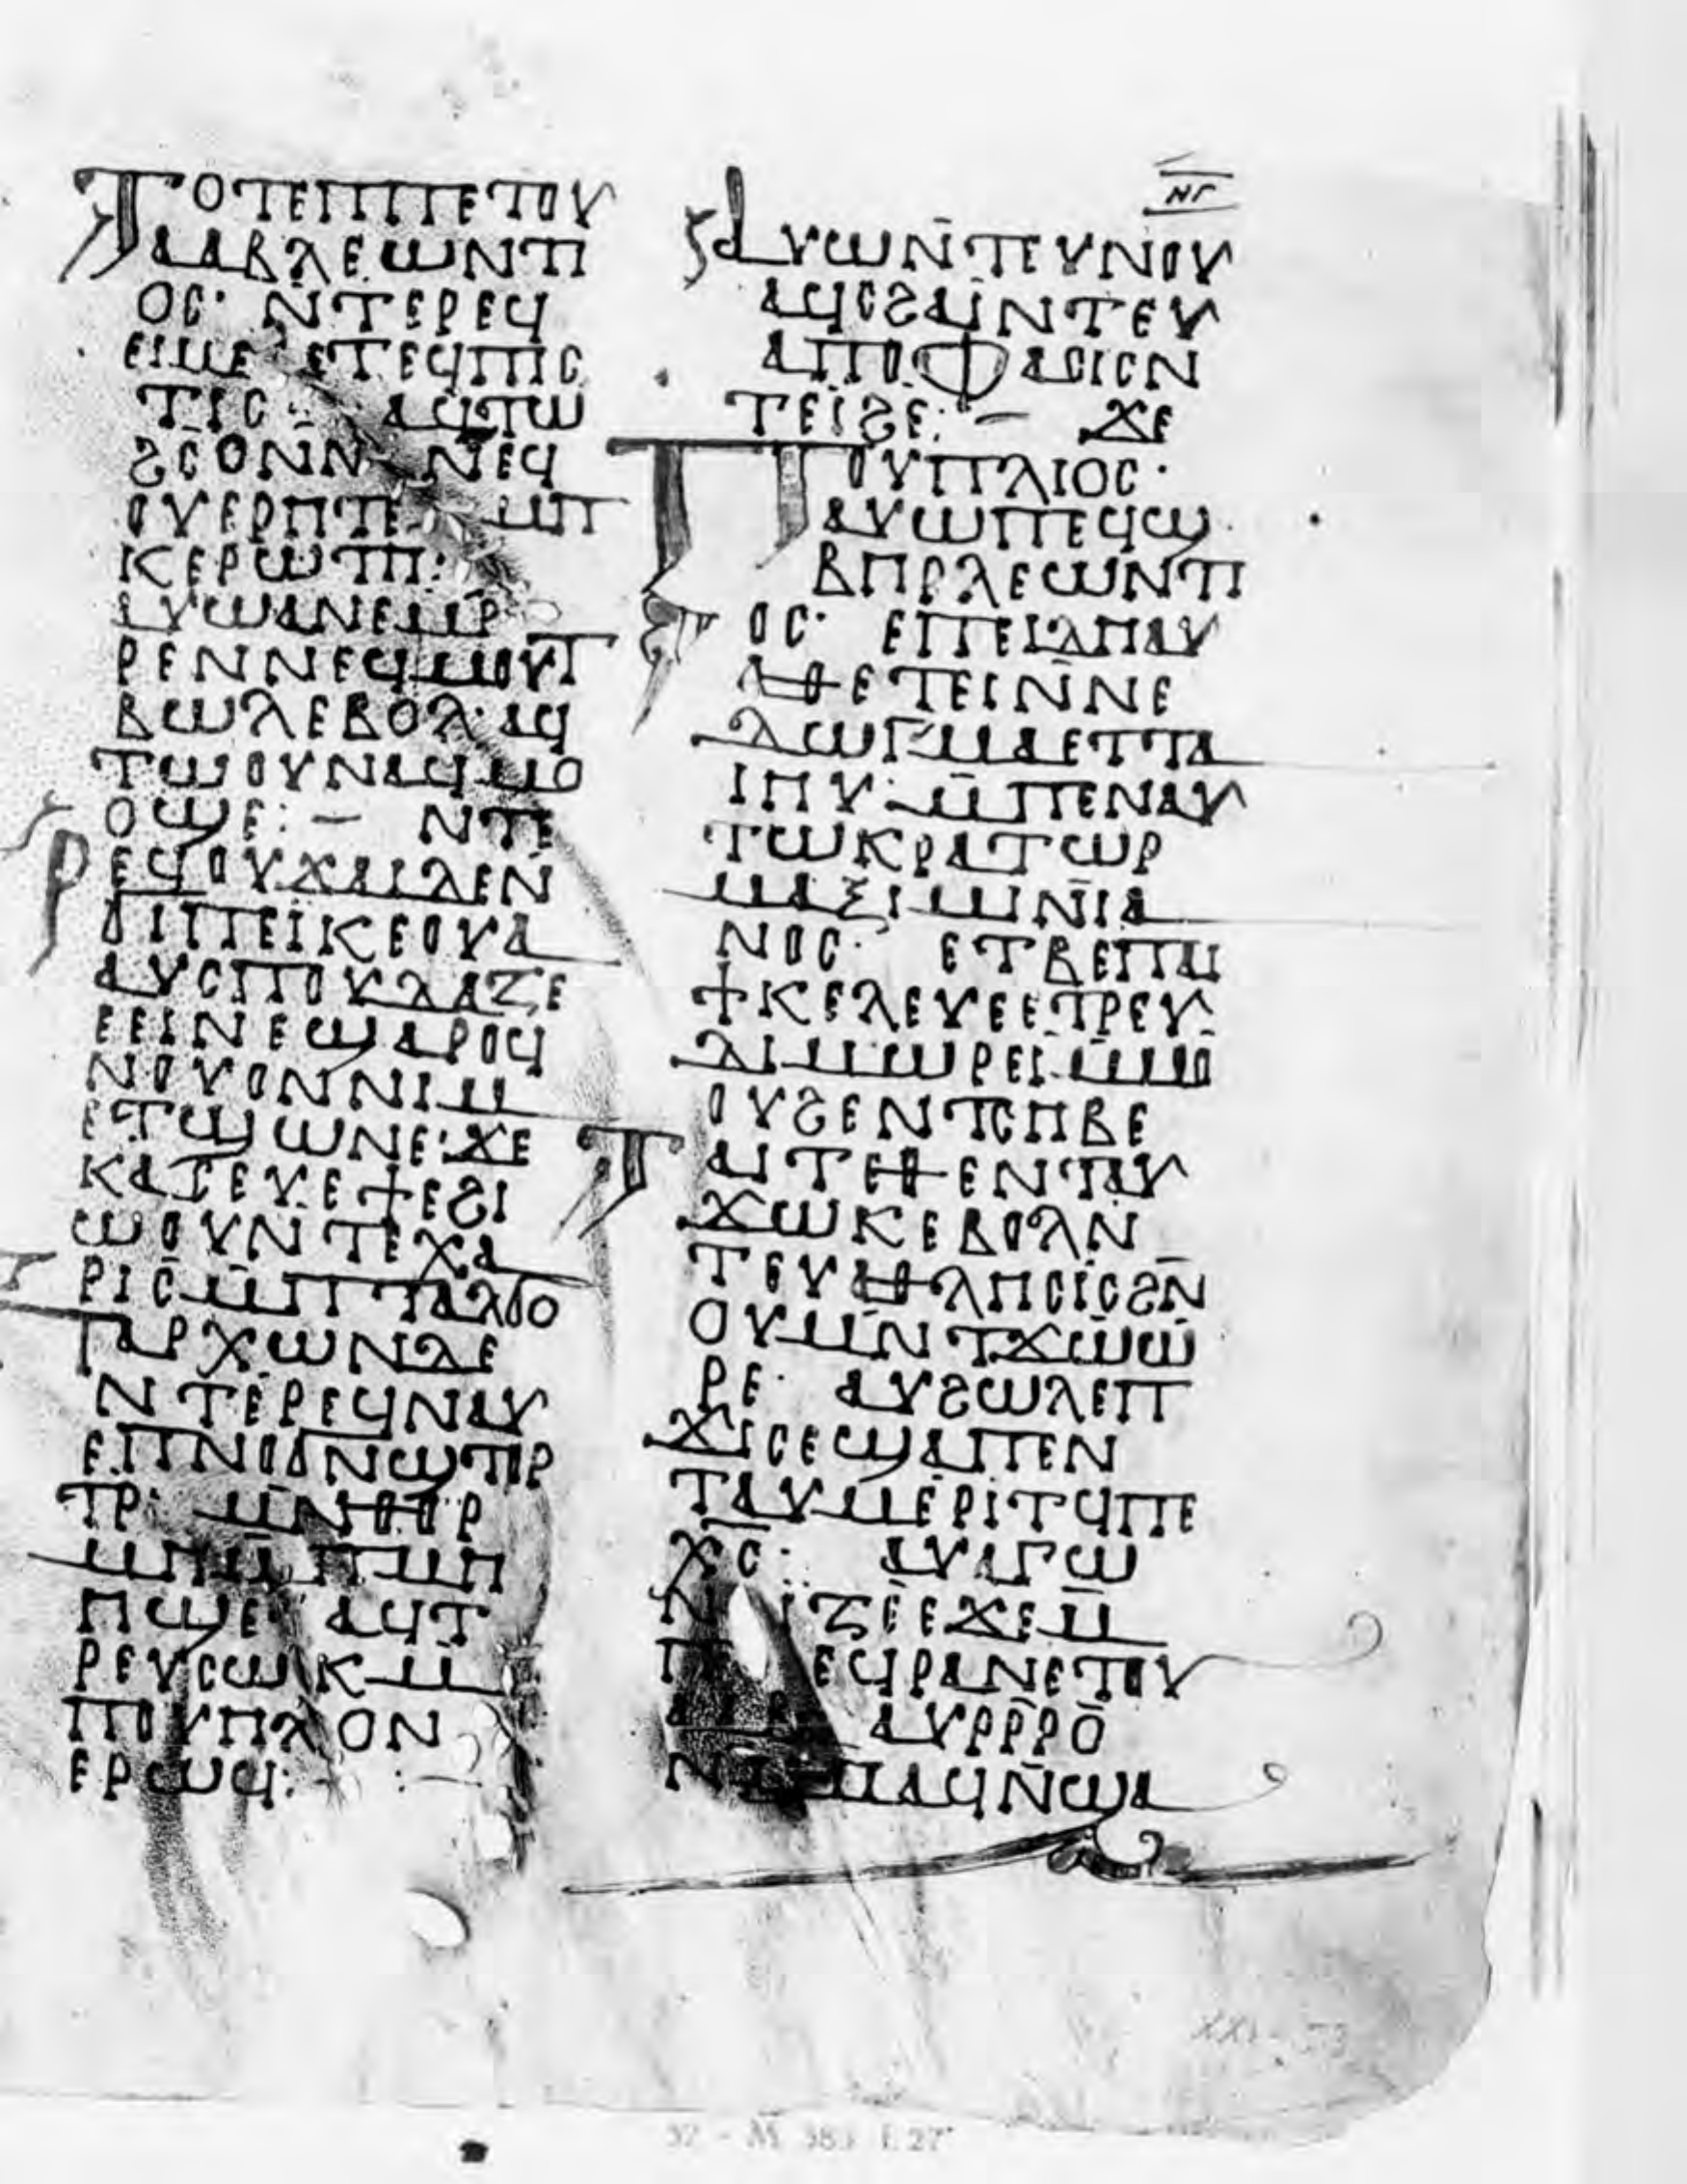 ⲧⲟⲧⲉⲡⲡⲉⲧⲟⲩ
ⲁⲁⲃⲗⲉⲱⲛⲧⲓ
ⲟⲥ· ⲛ̄ⲧⲉⲣⲉϥ
ⲉⲓⲙⲉ ⲉⲧⲉϥⲡⲓⲥ
ⲧⲓⲥ: ⲁϥⲧⲱ
ϩⲥⲟⲛⲛ ⲛⲉϥ
ⲟⲩⲉⲣⲏⲧⲉ ⲙⲡ
ⲕⲉⲣⲱⲧⲏ:
ⲁⲩⲱⲁⲛⲉⲙⲣ
ⲣⲉⲛⲛⲉϥⲙⲟⲩⲧ
ⲃⲱⲗⲉⲃⲟⲗ· ⲁϥ
ⲧⲱⲟⲩⲛⲁϥⲙⲟ
ⲟϣⲉ: — ⲛⲧⲉ
ⲣⲉϥⲟⲩϫⲁⲓⲇⲉⲛ
ϭⲓⲡⲉⲓⲕⲉⲟⲩⲁ
ⲁⲩⲥⲡⲟⲩⲇⲁⲍⲉ
ⲉⲉⲓⲛⲉϣⲁⲣⲟϥ
ⲛⲟⲩⲟⲛⲛⲓⲙ
ⲉⲧϣⲱⲛⲉ: ϫⲉ
ⲕⲁⲥⲉⲩⲉϯⲉϩⲓ
ⲱⲟⲩⲛⲧⲉⲭⲁ
ⲣⲓⲥⲙ̄ⲡⲧⲁⲗϭⲟ
ⲡⲁⲣⲭⲱⲛⲇⲉ
ⲛⲧⲉⲣⲉϥⲛⲁⲩ
ⲉⲡⲛⲟϭⲛϣⲧⲟⲣ
ⲧⲣ: ⲙⲛⲑⲟⲣ
ⲙⲏⲙⲡⲙⲏ
ⲏϣⲉ ⲁϥⲧ
ⲣⲉⲩⲥⲱⲕⲙ
ⲡⲟⲩⲏⲗⲟⲛ
ⲉⲣⲱϥ: —
ⲛⲅ
ⲁⲩⲱⲛ̄ⲧⲉⲩⲛⲟⲩ
ⲁϥⲥϩⲁⲓ̈ⲛⲧⲉⲩ
ⲁⲡⲟⲫⲁⲥⲓⲥⲛ
ⲧⲉⲓ̈ϩⲉ: — ϫⲉ
ⲡⲟⲩⲡⲗⲓⲟⲥ·
ⲁⲩⲱⲡⲉϥϣ
ⲃⲏⲣⲗⲉⲱⲛⲧⲓ
ⲟⲥ· ⲉⲡⲉⲓⲇⲏⲁⲩ
ⲁⲑⲉⲧⲉⲓⲛ̄ⲛⲉ
ⲇⲱⲅⲙⲁⲉⲧⲧⲁ
ⲓⲏⲩ· ⲙ̄ⲡⲉⲛⲁⲩ
ⲧⲱⲕⲣⲁⲧⲱⲣ
ⲙⲁⲝⲓⲙⲓⲛⲓⲁ
ⲛⲟⲥ· ⲉⲧⲃⲉⲡⲁⲓ
ϯⲕⲉⲗⲉⲩⲉⲉⲧⲣⲉⲩ
ⲇⲓⲙⲱⲣⲉⲓⲙ̄ⲙⲟ
ⲟⲩϩⲉⲛⲧⲥⲏⲃⲉ
ⲧⲁⲓⲧⲉⲑⲉⲛⲧⲁⲩ
ϫⲱⲕⲉⲃⲟⲗⲛ
ⲧⲉⲩⲁⲑⲗⲏⲥⲓⲥϩⲛ̄
ⲟⲩⲙⲛ̄ⲧϫⲱⲱ
ⲣⲉ· ⲁⲩϩⲱⲗⲉⲡ
ϫⲓⲥⲉϣⲁⲡⲉⲛ
ⲧⲁⲩⲙⲉⲣⲓⲧϥⲡⲉ
ⲭ̄ⲥ̄: ⲁⲩⲁⲅⲱ
ⲉϥⲣⲁⲛⲉⲧⲟⲩ
ⲁⲩⲣⲣⲣⲟ
ⲛⲙⲙⲁϥⲛ̄ϣⲁ
XXI - 53
32 - M 583 f. 27